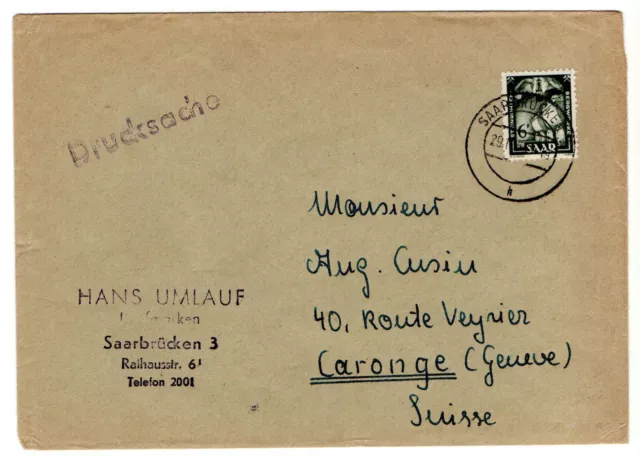 Drucksache
SAARBRÜCKEN
29.
h
6
SAAR
Monsieur
Aug. Cusin
40, Route Veyrier
Caronge (Geneve)
Suisse
HANS UMLAUF
Briefmarken
Saarbrücken 3
Rathausstr. 61
Telefon 2001